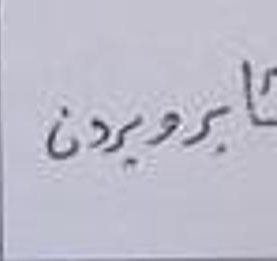 برو بردن